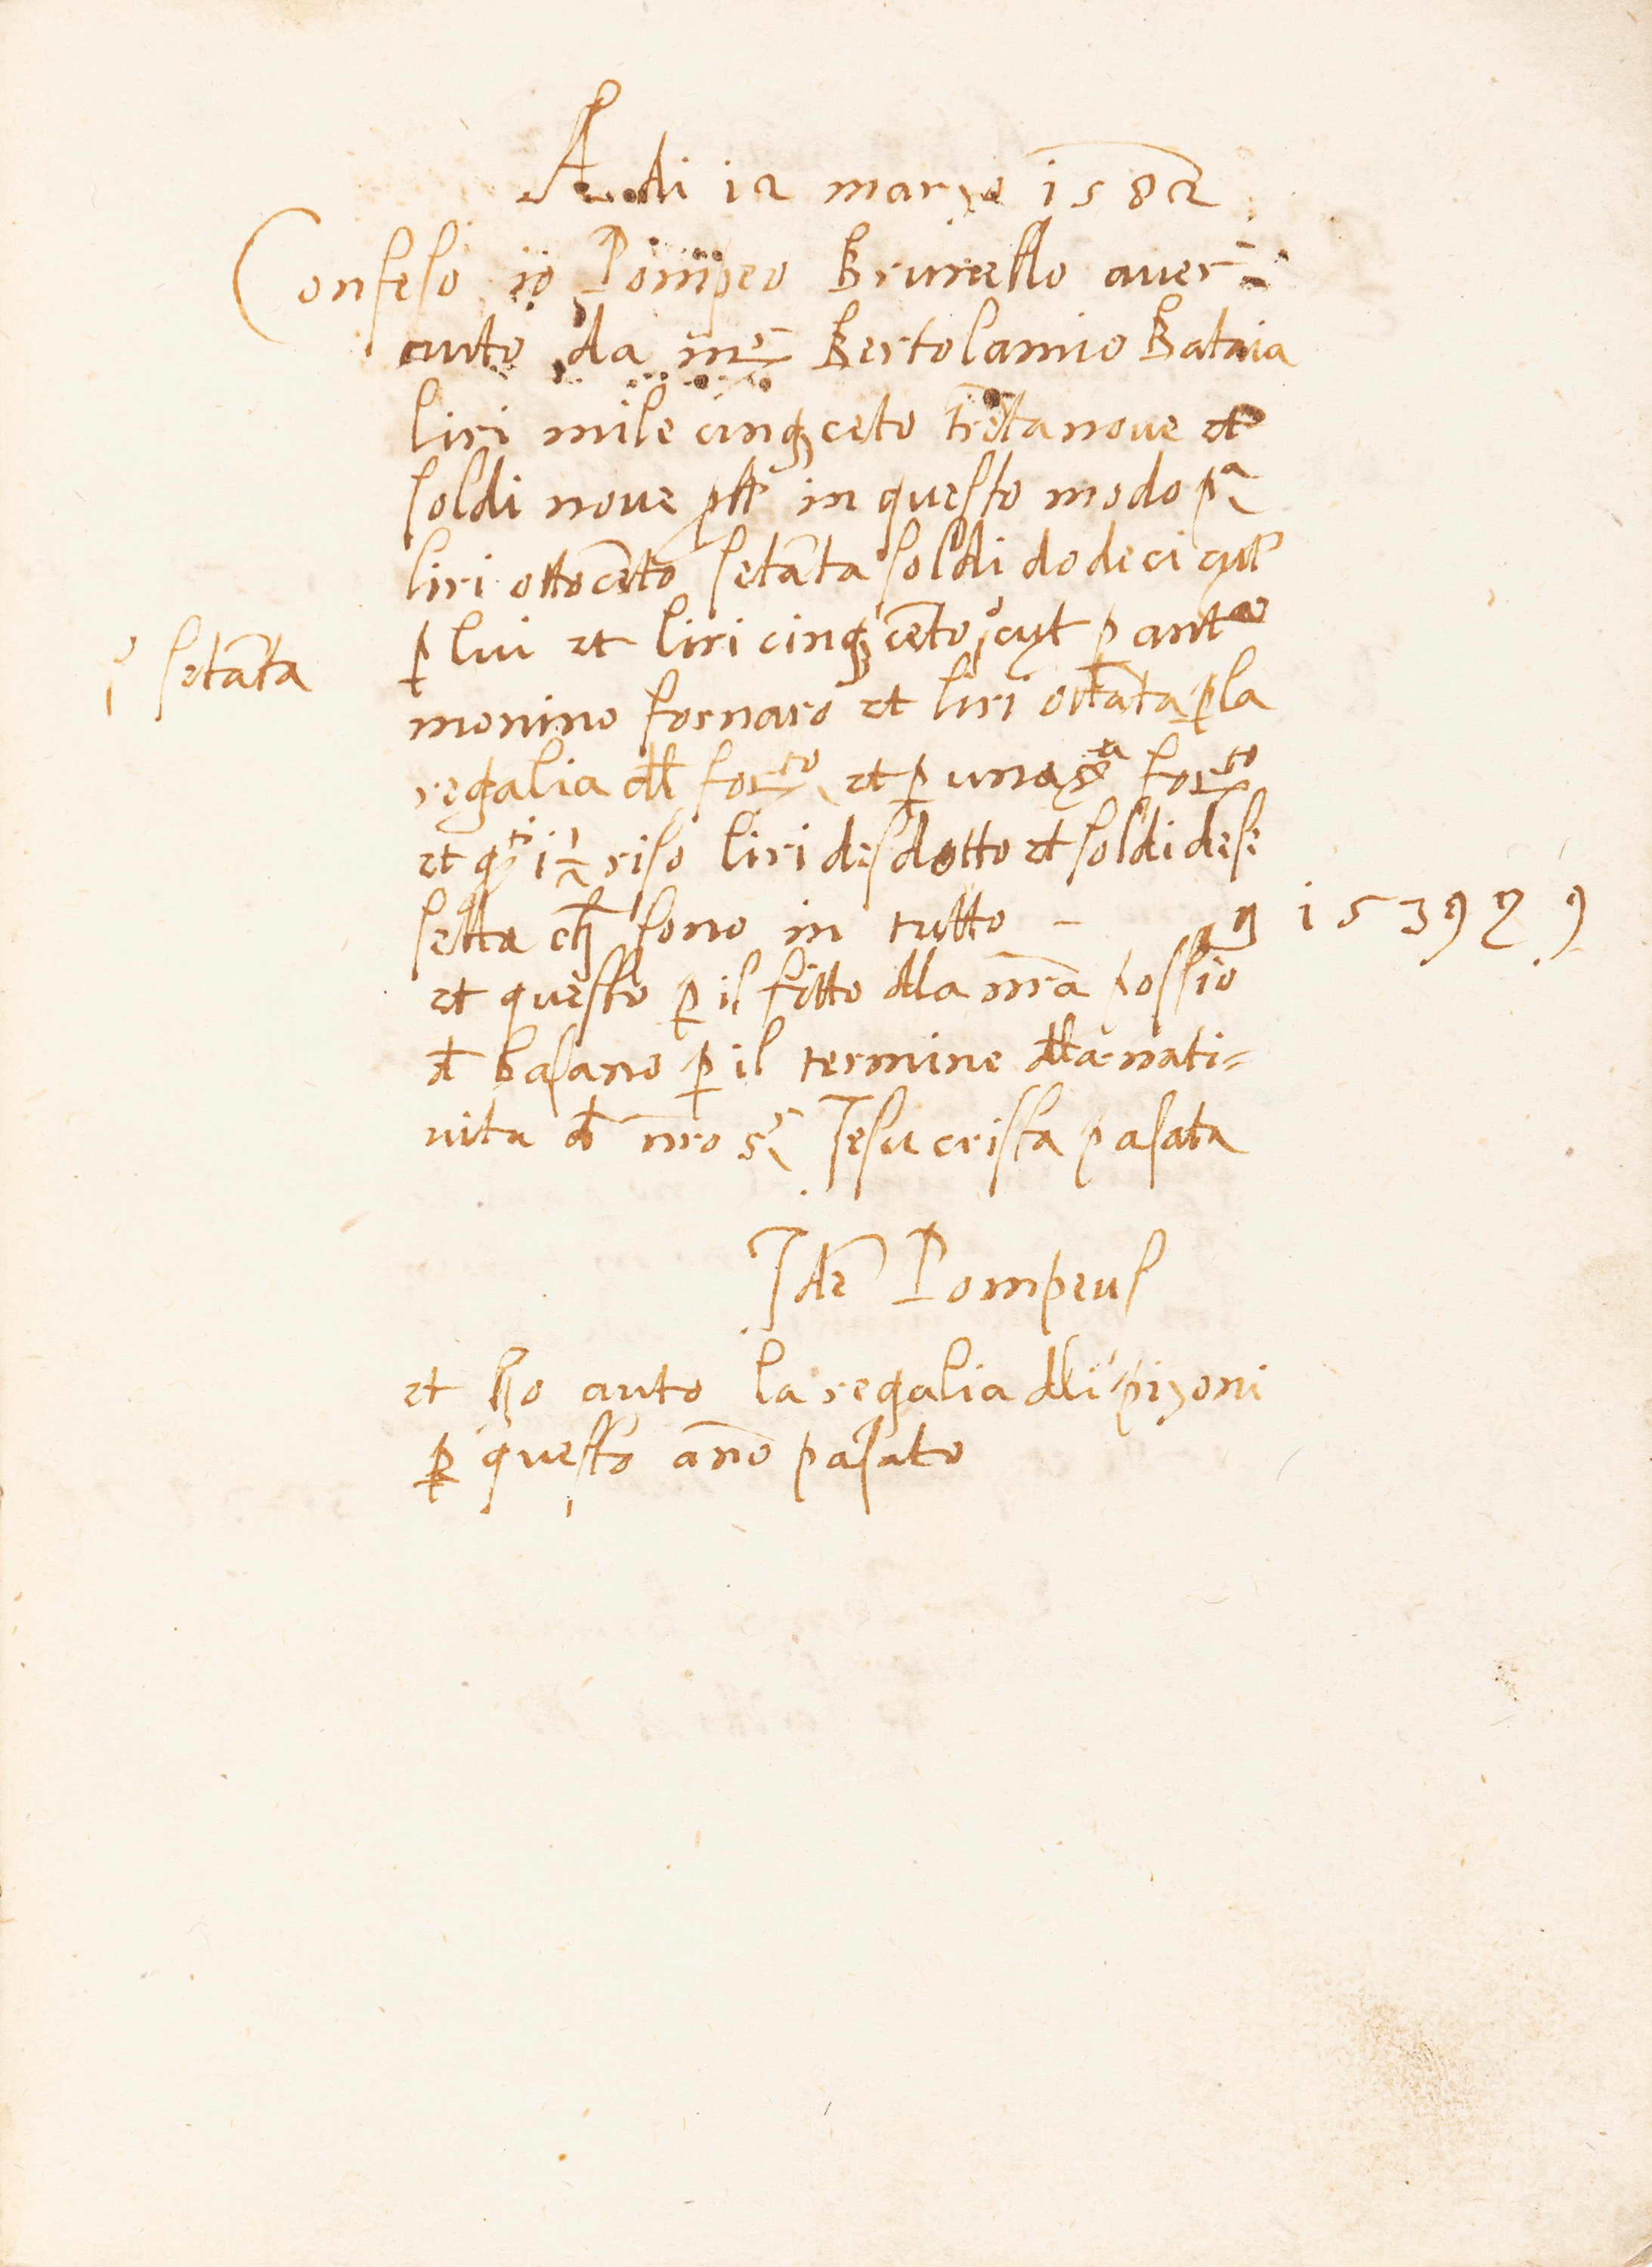 A di 12 marzo 1582
Confeso io Pompeo Brunello aver
auto da mr Bertolamio Bataia
liri mile cinq ceto tretanove et
soldi nove pltti in questo modo pa
liri ottoceto setata soldi dodeci cqt
p lui et liri cinq ceto cqt p anto
setata
monino fornaro et liri ottata p la
regalia dll forto et p una forto
et q ti 1 riso liri desdotto et soldi dese
sette ch sono in tutto – 1539 9
et questo p il fitto dlla nra possio
d basano p il termine dlla nati=
vita d nro sr Jesu crista pasata
Ide Pompeus
et ho auto la regalia dlli pizoni
p questo ano pasato